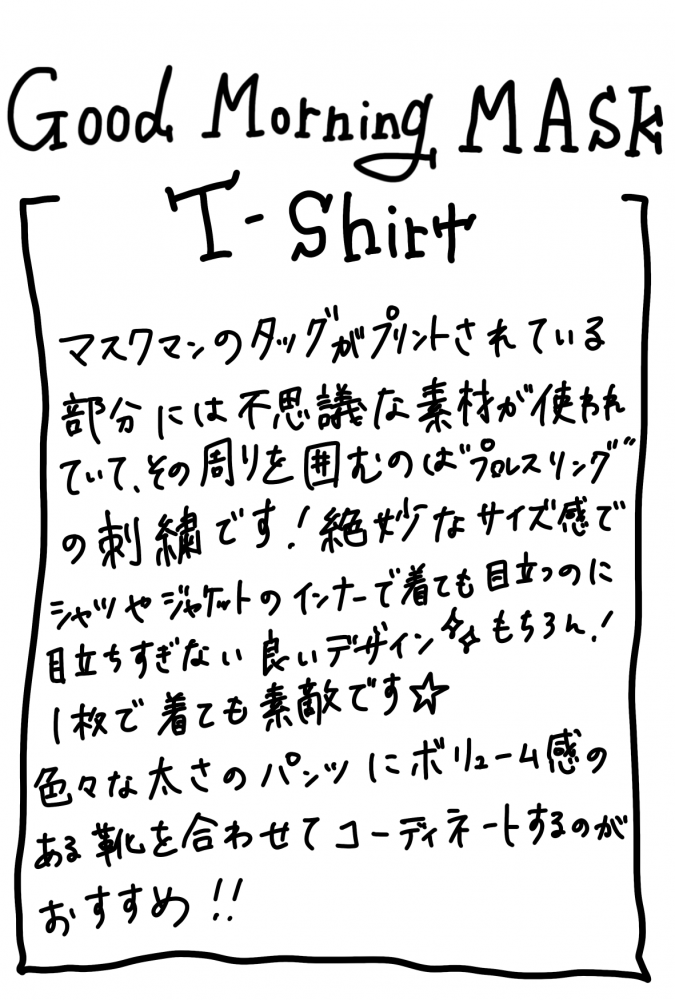 Good Morning MASK
T-Shirt
マスクマンのタッグがプリントされている
部分には不思議な素材が使われ
ていて、その周りを囲むのは"プロレスリング"
の刺繍です！絶妙なサイズ感で
シャツやジャケットのインナーで着ても目立つのに
目立ちすぎない良いデザイン✨もちろん！
1枚で着ても素敵です☆
色々な太さのパンツにボリューム感の
ある靴を合わせてコーディネートするのが
おすすめ!!